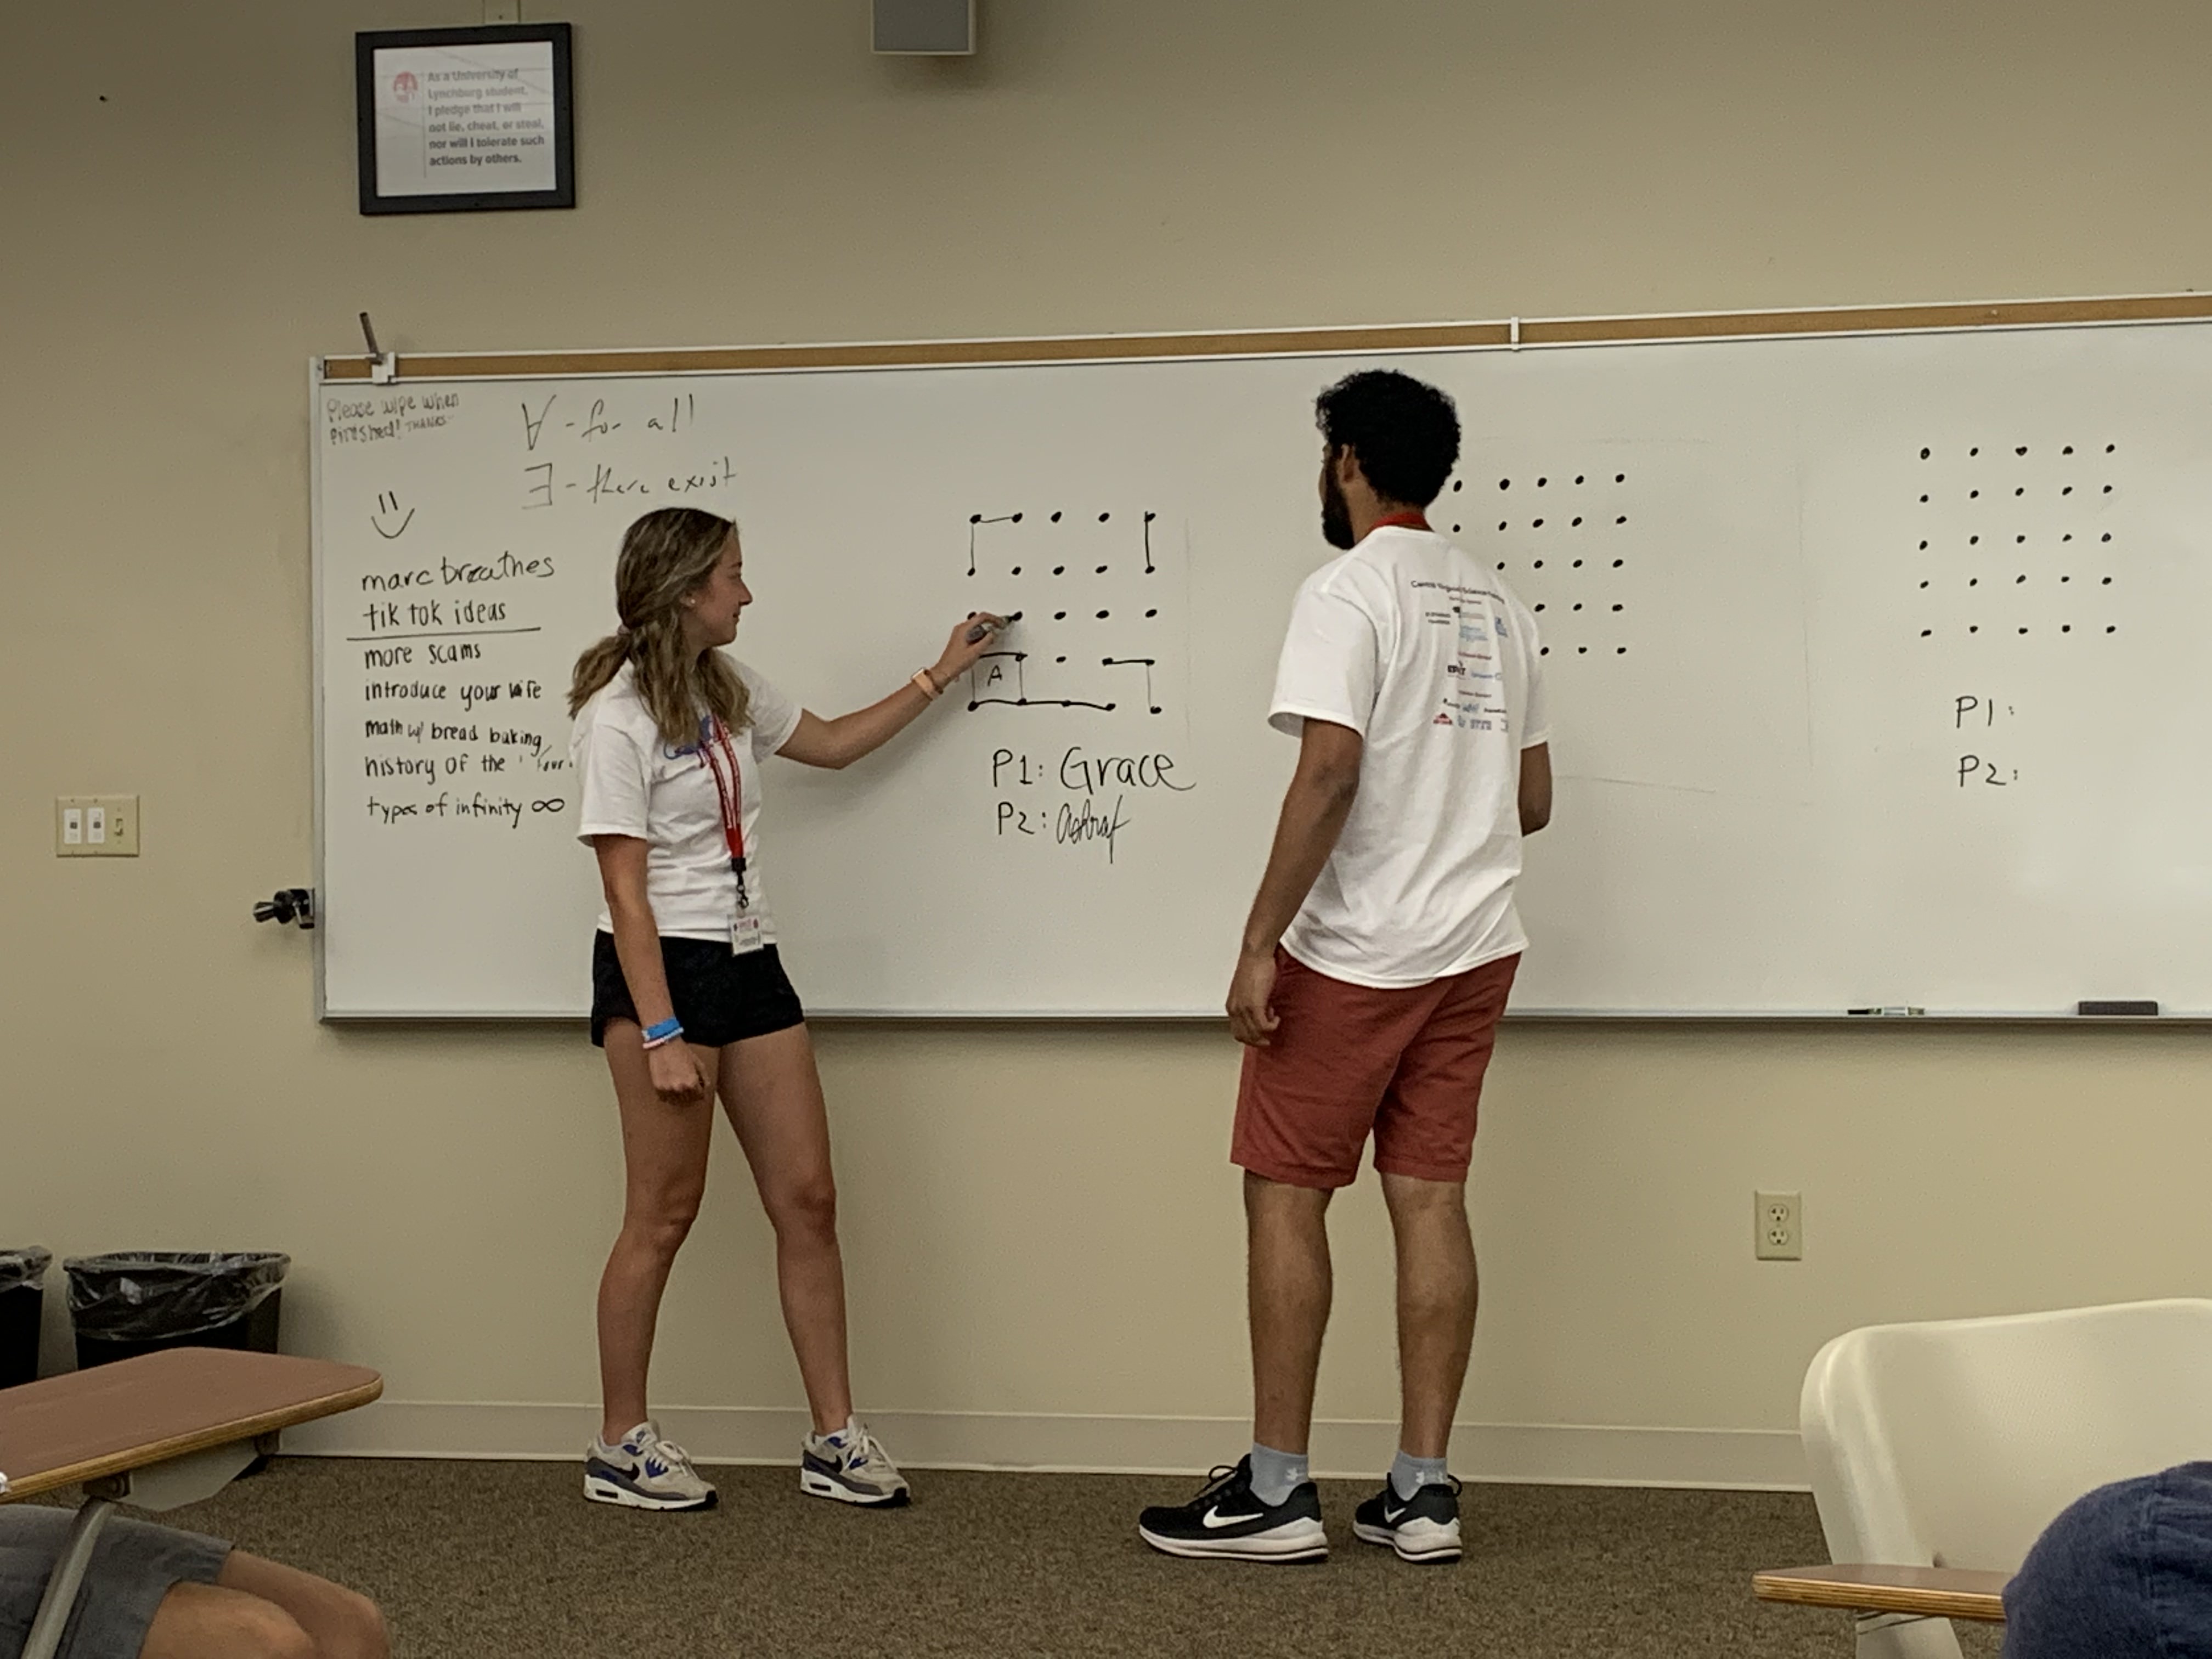 As a University of
Lynchburg student,
I pledge that I will
not lie, cheat, or steal,
nor will I tolerate such
actions by others.
Please wipe when
finished! THANKS
∀ - for all
∃ - there exist
marc breathes
tik tok ideas
more scams
introduce your wife
math w/ bread baking
history of the
types of infinity ∞
A
P1: Grace
P2: Ashraf
P1:
P2: